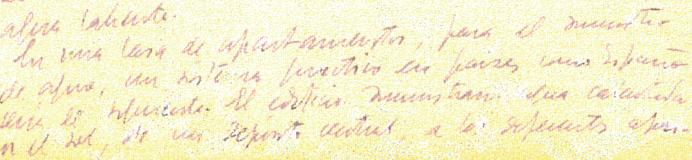 agua caliente.
En una casa de apartamentos, para el suministro
de agua, un sistema practico en paises como España
sería el siguiente. El edificio suministrará agua calentada
en el sol, de un depósito central a los diferentes apar-